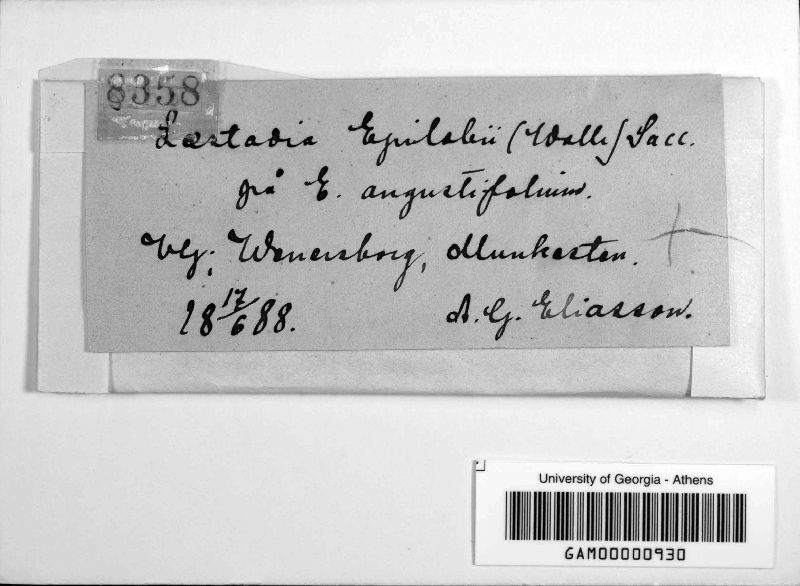 8358
Læstadia Epilobii (Wallr) Sacc.
på E. angustifolium.
Vg; Wenersborg, Munkesten.
18 17/6 88.
A. G. Eliasson.
University of Georgia - Athens
GAM00000930